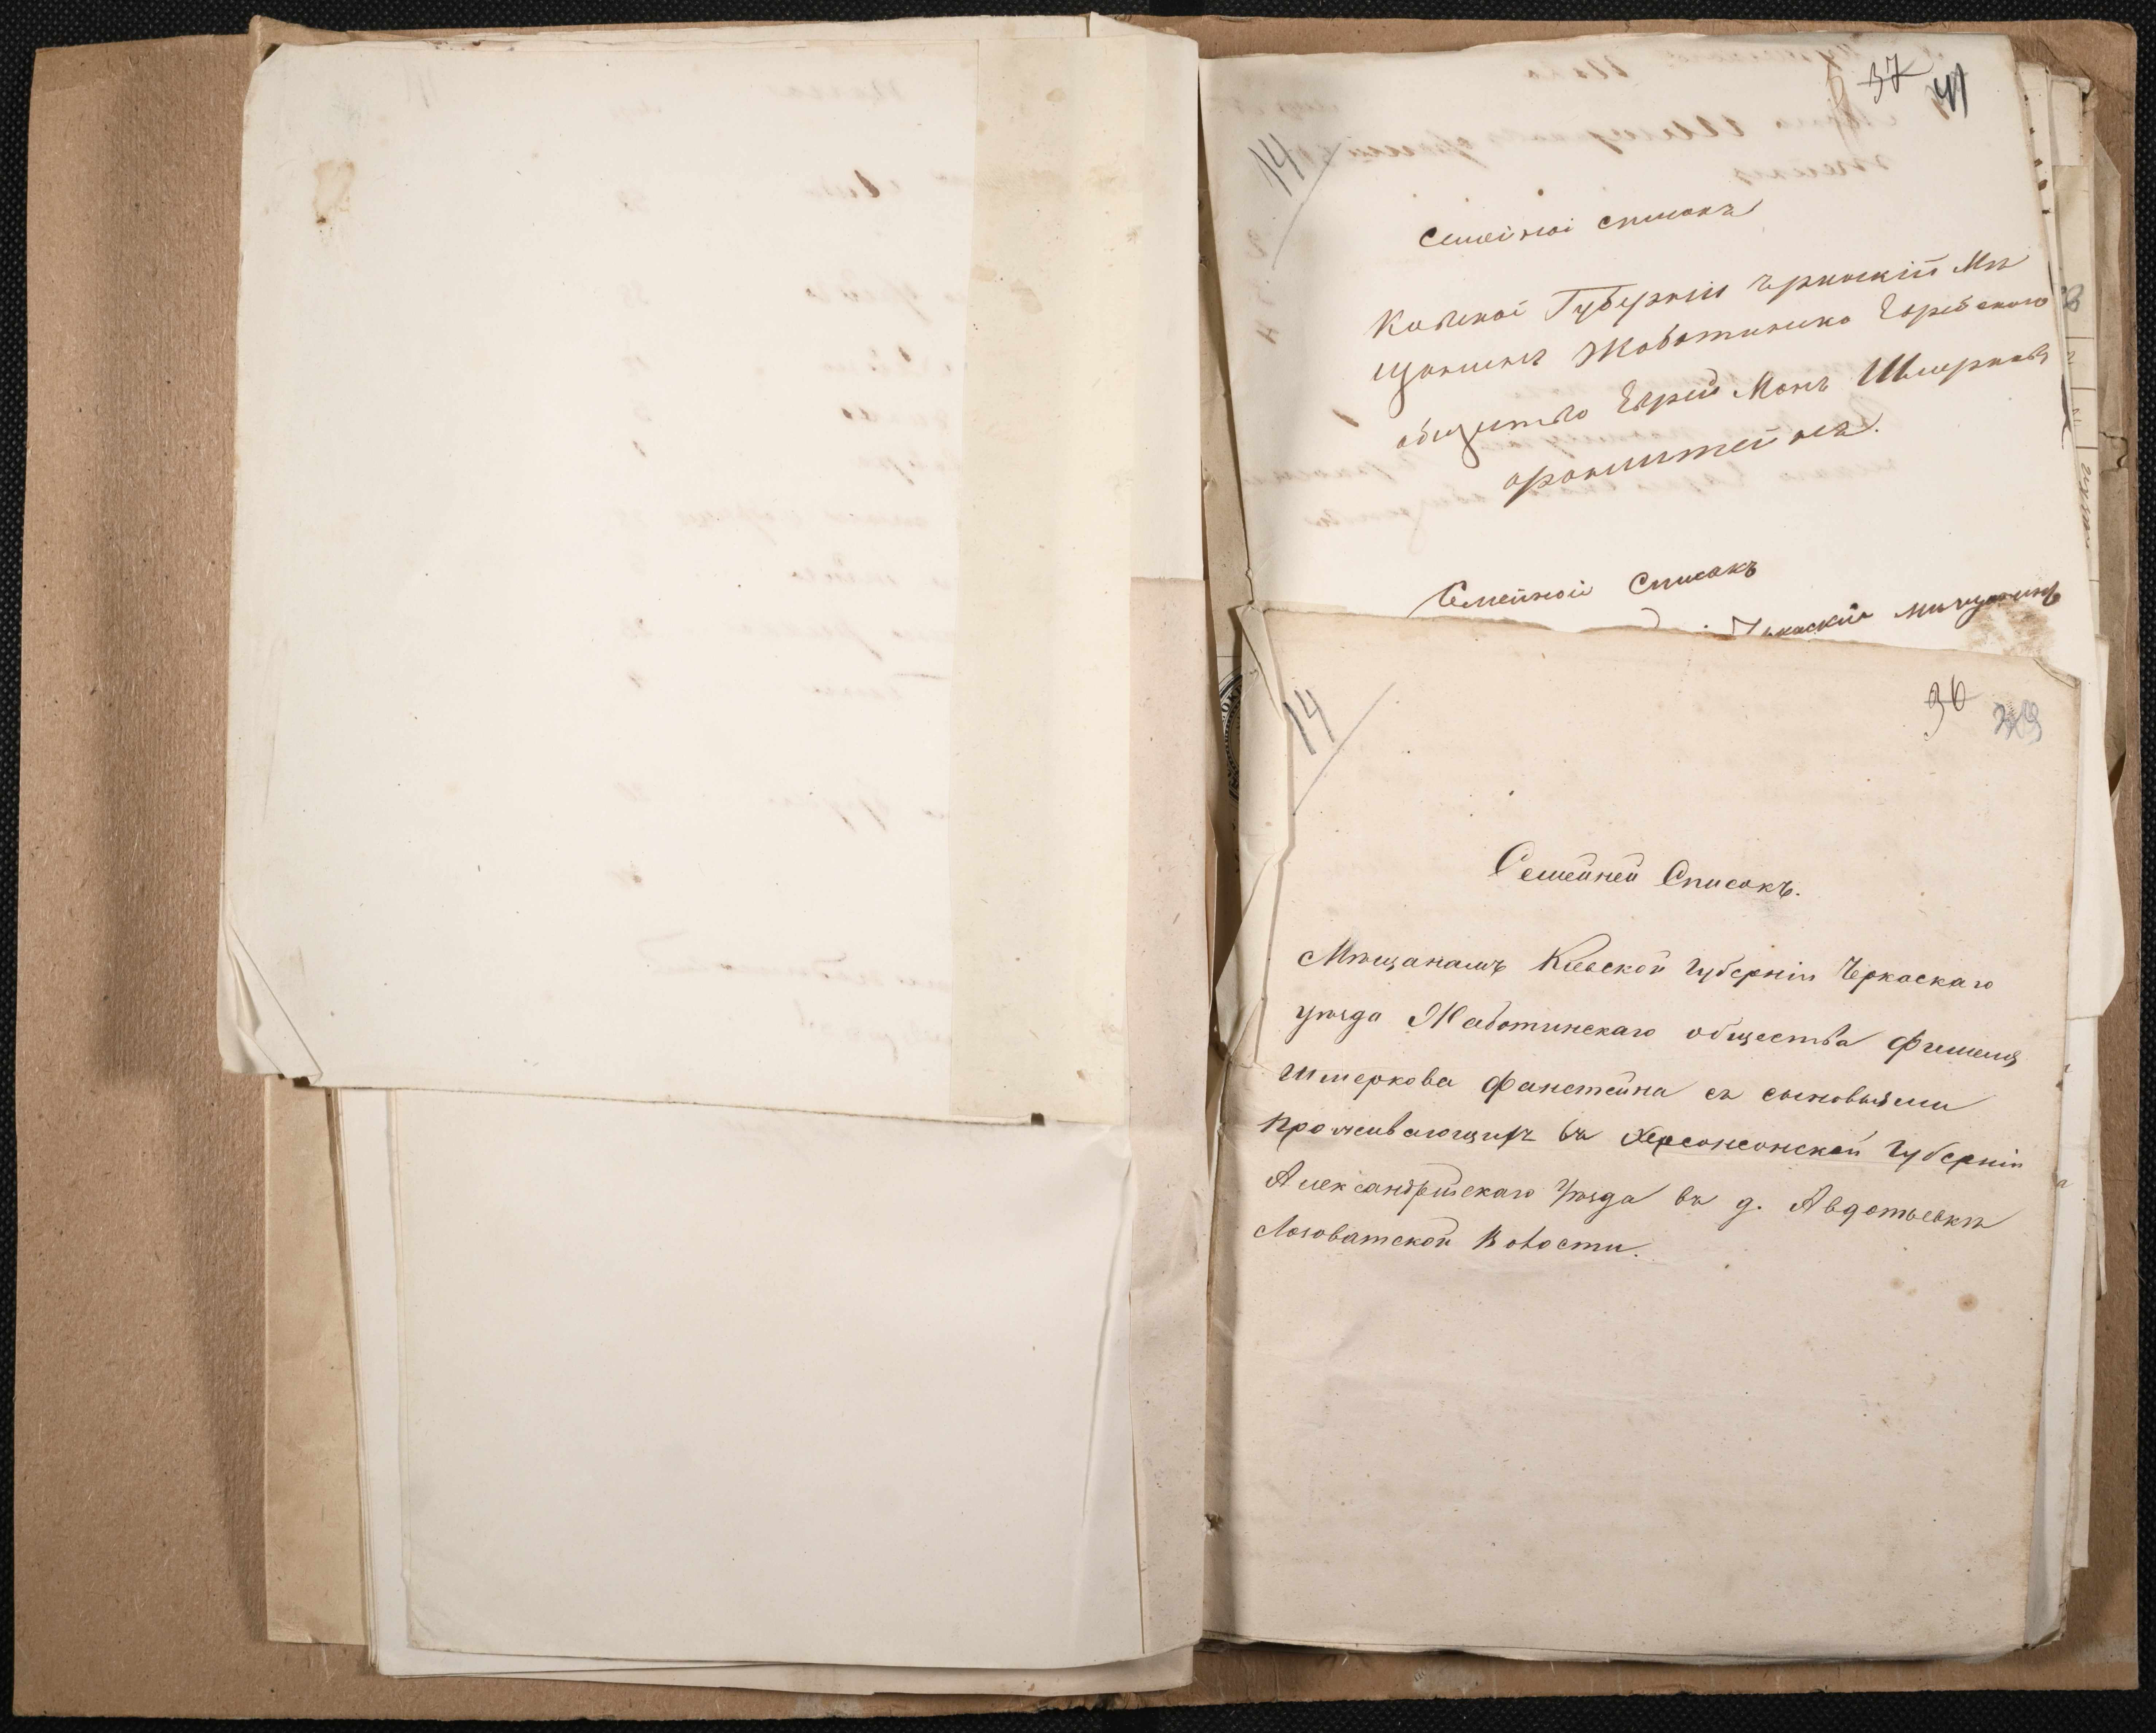 37 41
14
Семейной списокъ
Киевкой Губерніи Чркаскій Мѣ
щанинъ Жаботинско Еврейскаго
общество Еврей Манъ Шмерковъ
Семейной Списокъ
Чркаскій мищанинъ
14
36
Семейней Списокъ.
Мѣщанамъ Кіевской Губерніи Черкаскаго
уѣзда Жаботинскаго общества Фишеля
Шмеркова Фанстейна съ сыновьями
Проживающихъ въ Херсонсонской Губерніи
Александрійскаго Уѣзда въ д. Авдотьевкѣ
Лозоватской Волости.